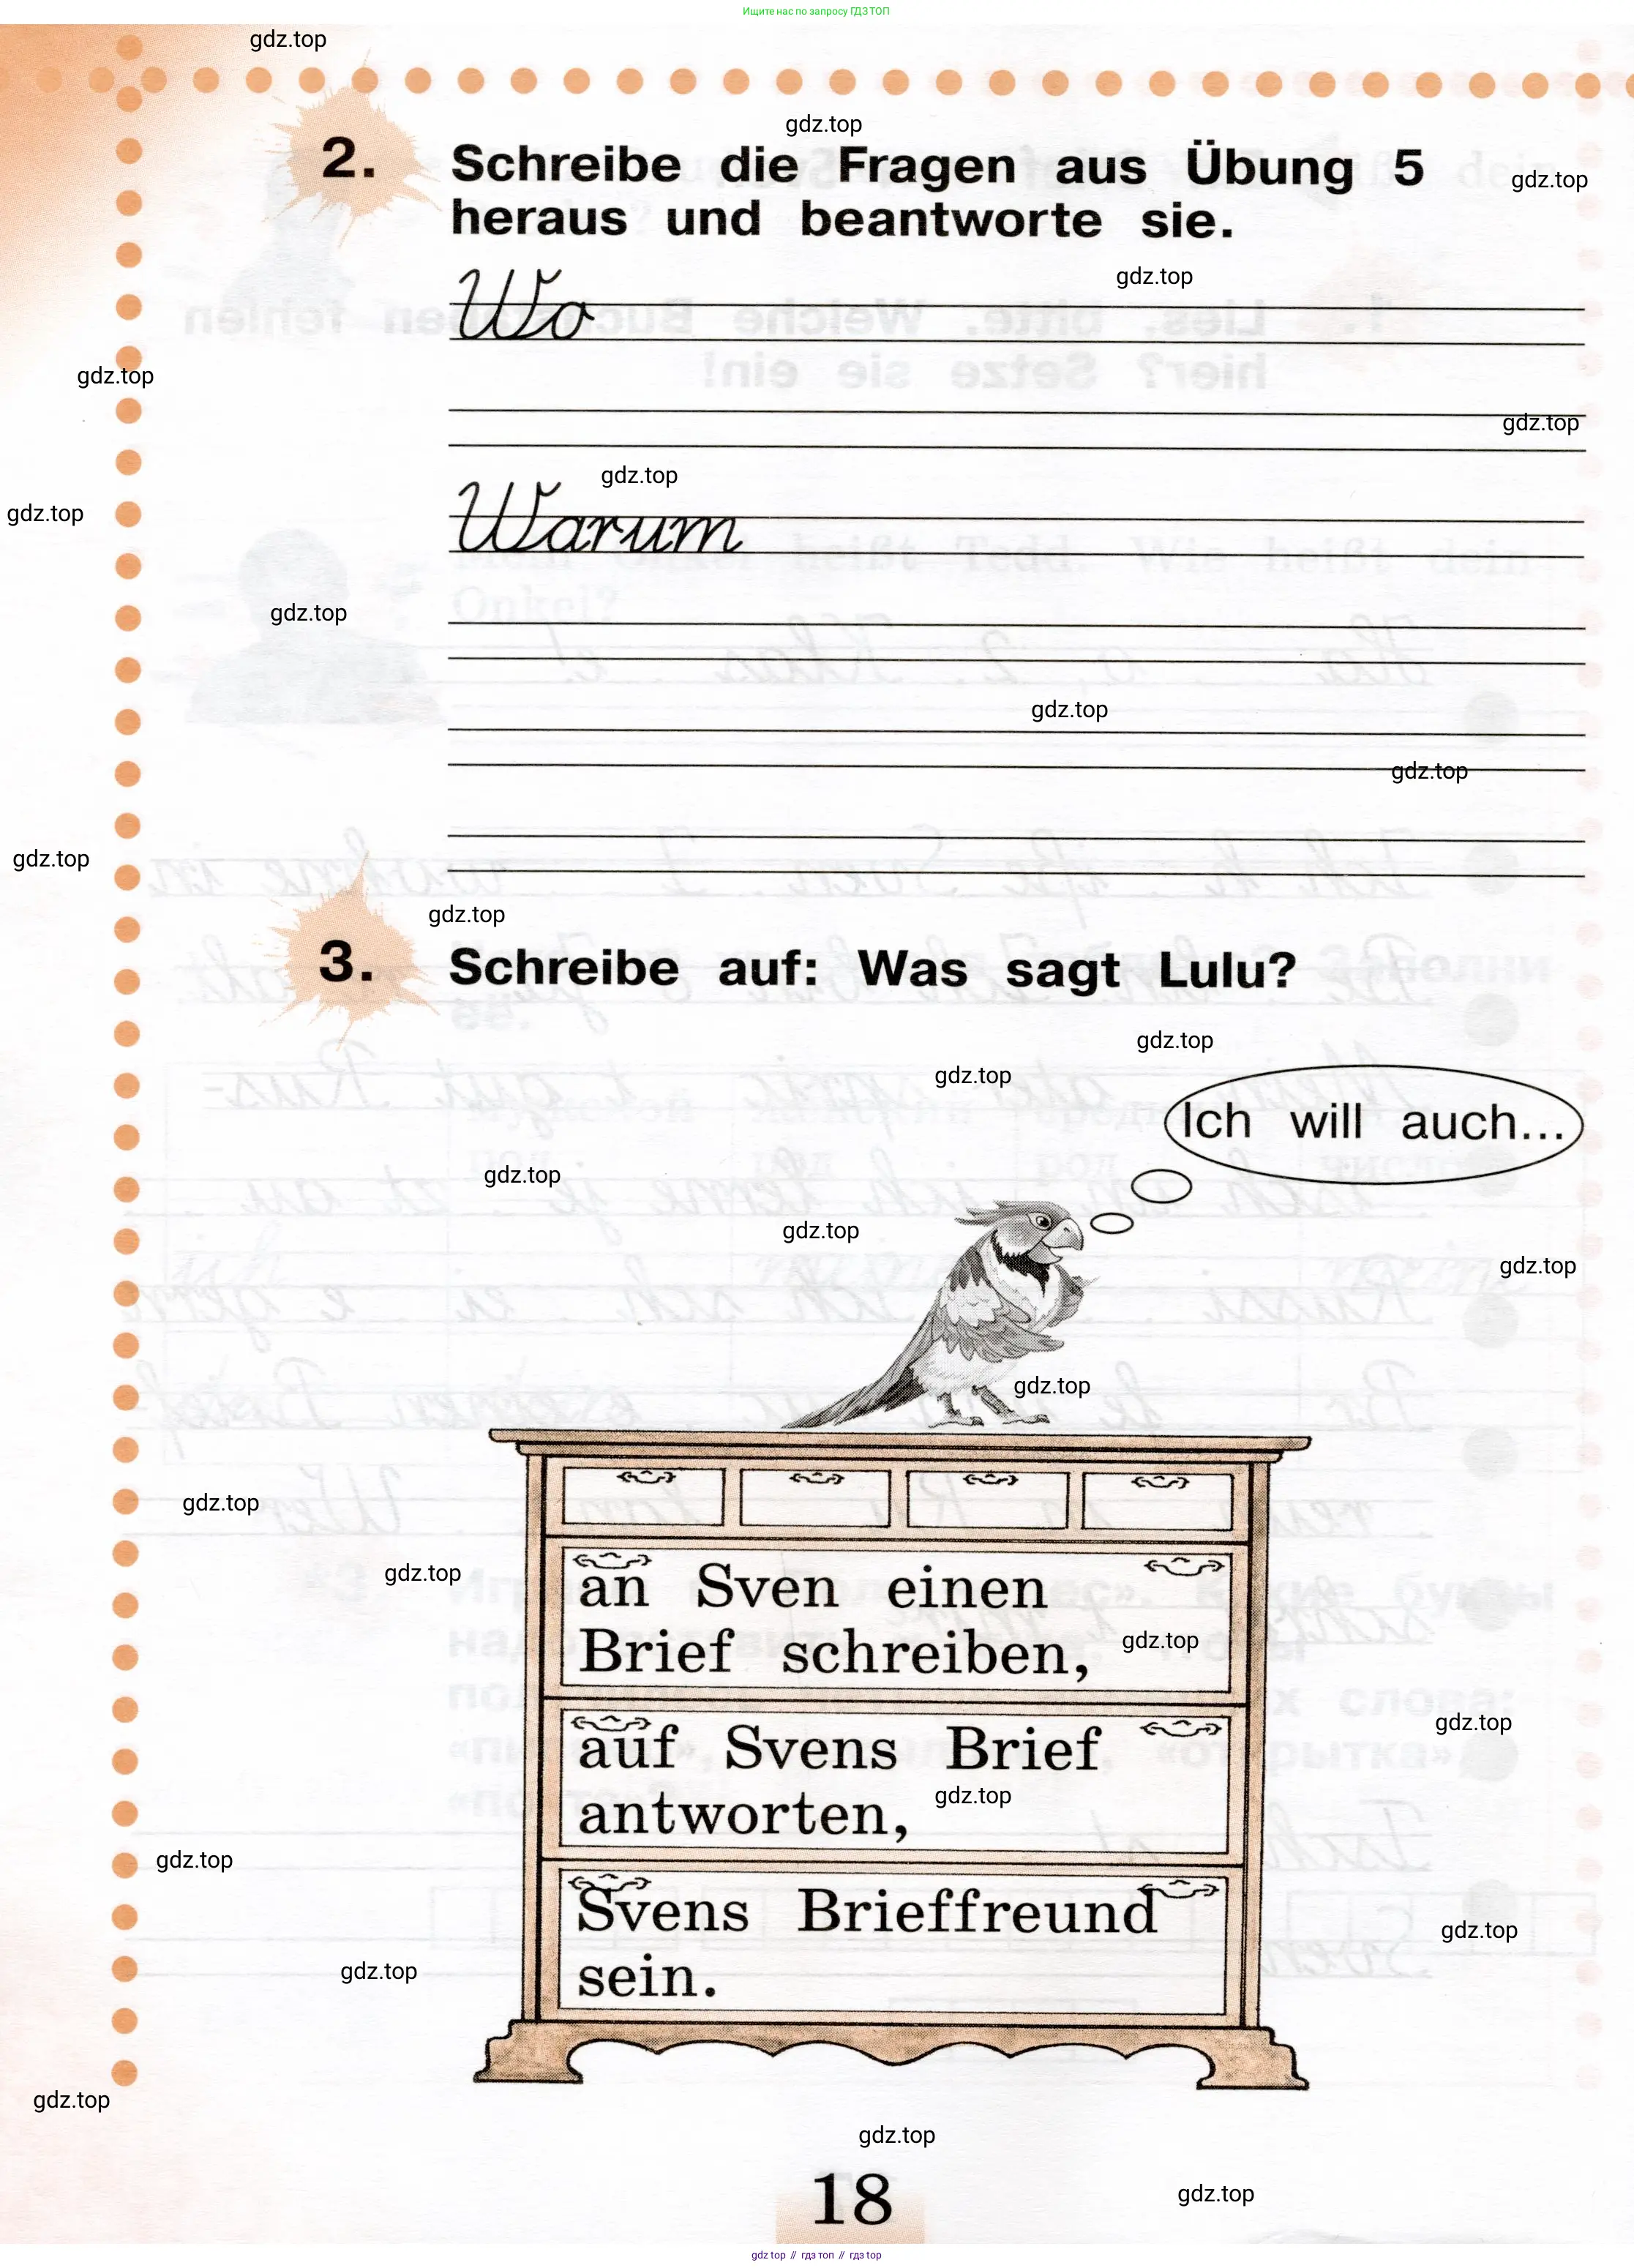 Ищите нас по запросу ГДЗ ТОП
gdz.top
gdz.top
2. Schreibe die Fragen aus Übung 5
gdz.top
heraus und beantworte sie.
gdz.top
Wo
gdz.top
gdz.top
gdz.top
gdz.top
Warum
gdz.top
gdz.top
gdz.top
gdz.top
gdz.top
3. Schreibe auf: Was sagt Lulu?
gdz.top
gdz.top
Ich will auch...
gdz.top
gdz.top
gdz.top
gdz.top
gdz.top
gdz.top
an Sven einen
Brief schreiben,
gdz.top
gdz.top
auf Svens Brief
gdz.top
antworten,
gdz.top
Svens Brieffreund
gdz.top
gdz.top
sein.
gdz.top
gdz.top
18
gdz.top
gdz top // гдз топ // гдз top